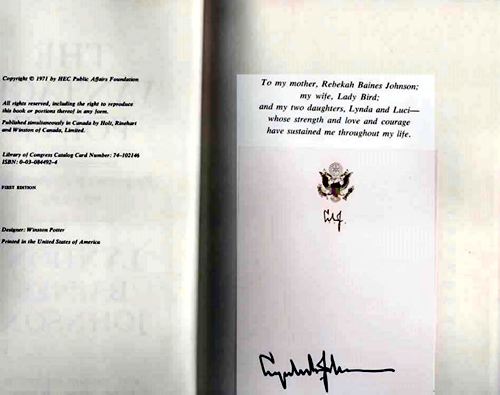 Copyright © 1971 by HEC Public Affairs Foundation
All rights reserved, including the right to reproduce
this book or portions thereof in any form.
Published simultaneously in Canada by Holt, Rinehart
and Winston of Canada, Limited.
Library of Congress Catalog Card Number: 74-102146
ISBN: 0-03-084492-4
FIRST EDITION
Designer: Winston Potter
Printed in the United States of America
To my mother, Rebekah Baines Johnson;
my wife, Lady Bird;
and my two daughters, Lynda and Luci—
whose strength and love and courage
have sustained me throughout my life.